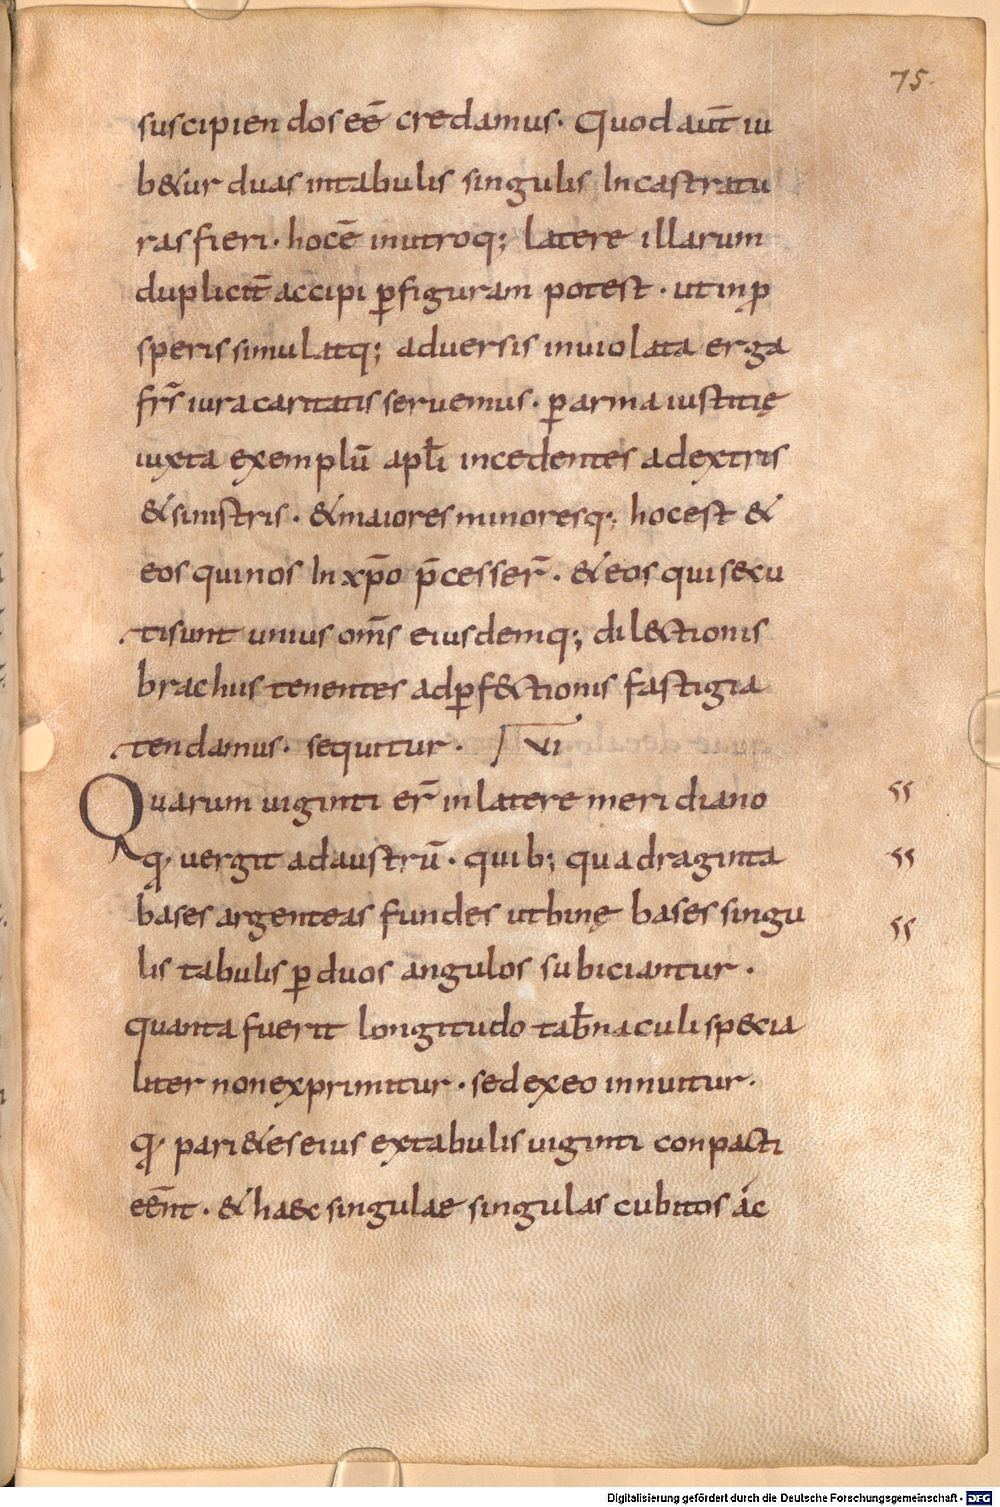 75.
suscipiendos eē credamus. Quod aut̄ iu
b&ur duas intabulis singulis Incastratu
ras fieri. hoc ē inutroq; latere illarum
duplicit̄ accipi p̲figuram potest. ut inꝓ
speris simulatq; aduersis inuiolata erga
fr̄s iura caritatis seruemus. ꝑ arma iustitię
iuxta exemplū apl̄i incedentes adextris
& sinistris. & maiores minoresq; hoc est &
eos quinos In xp̄o p̄cesser̄. & eos qui secu
ti sunt unius om̄s eiusdemq; dil&tionis
brachiis tenentes adꝑf&tionis fastigia
tendamus. sequitur. VI
Quarum uiginti er̄ in latere meridiano
qꝫ uergit ad austrū. quib; quadraginta
bases argenteas fundes ut binę bases singu
lis tabulis ꝑ duos angulos subiciantur.
quanta fuerit longitudo tab̄naculi specia
liter non exprimitur. sed ex eo innuitur.
qꝫ pari&es eius ex tabulis uiginti conpacti
eēnt. & haec singulae singulas cubitos ac